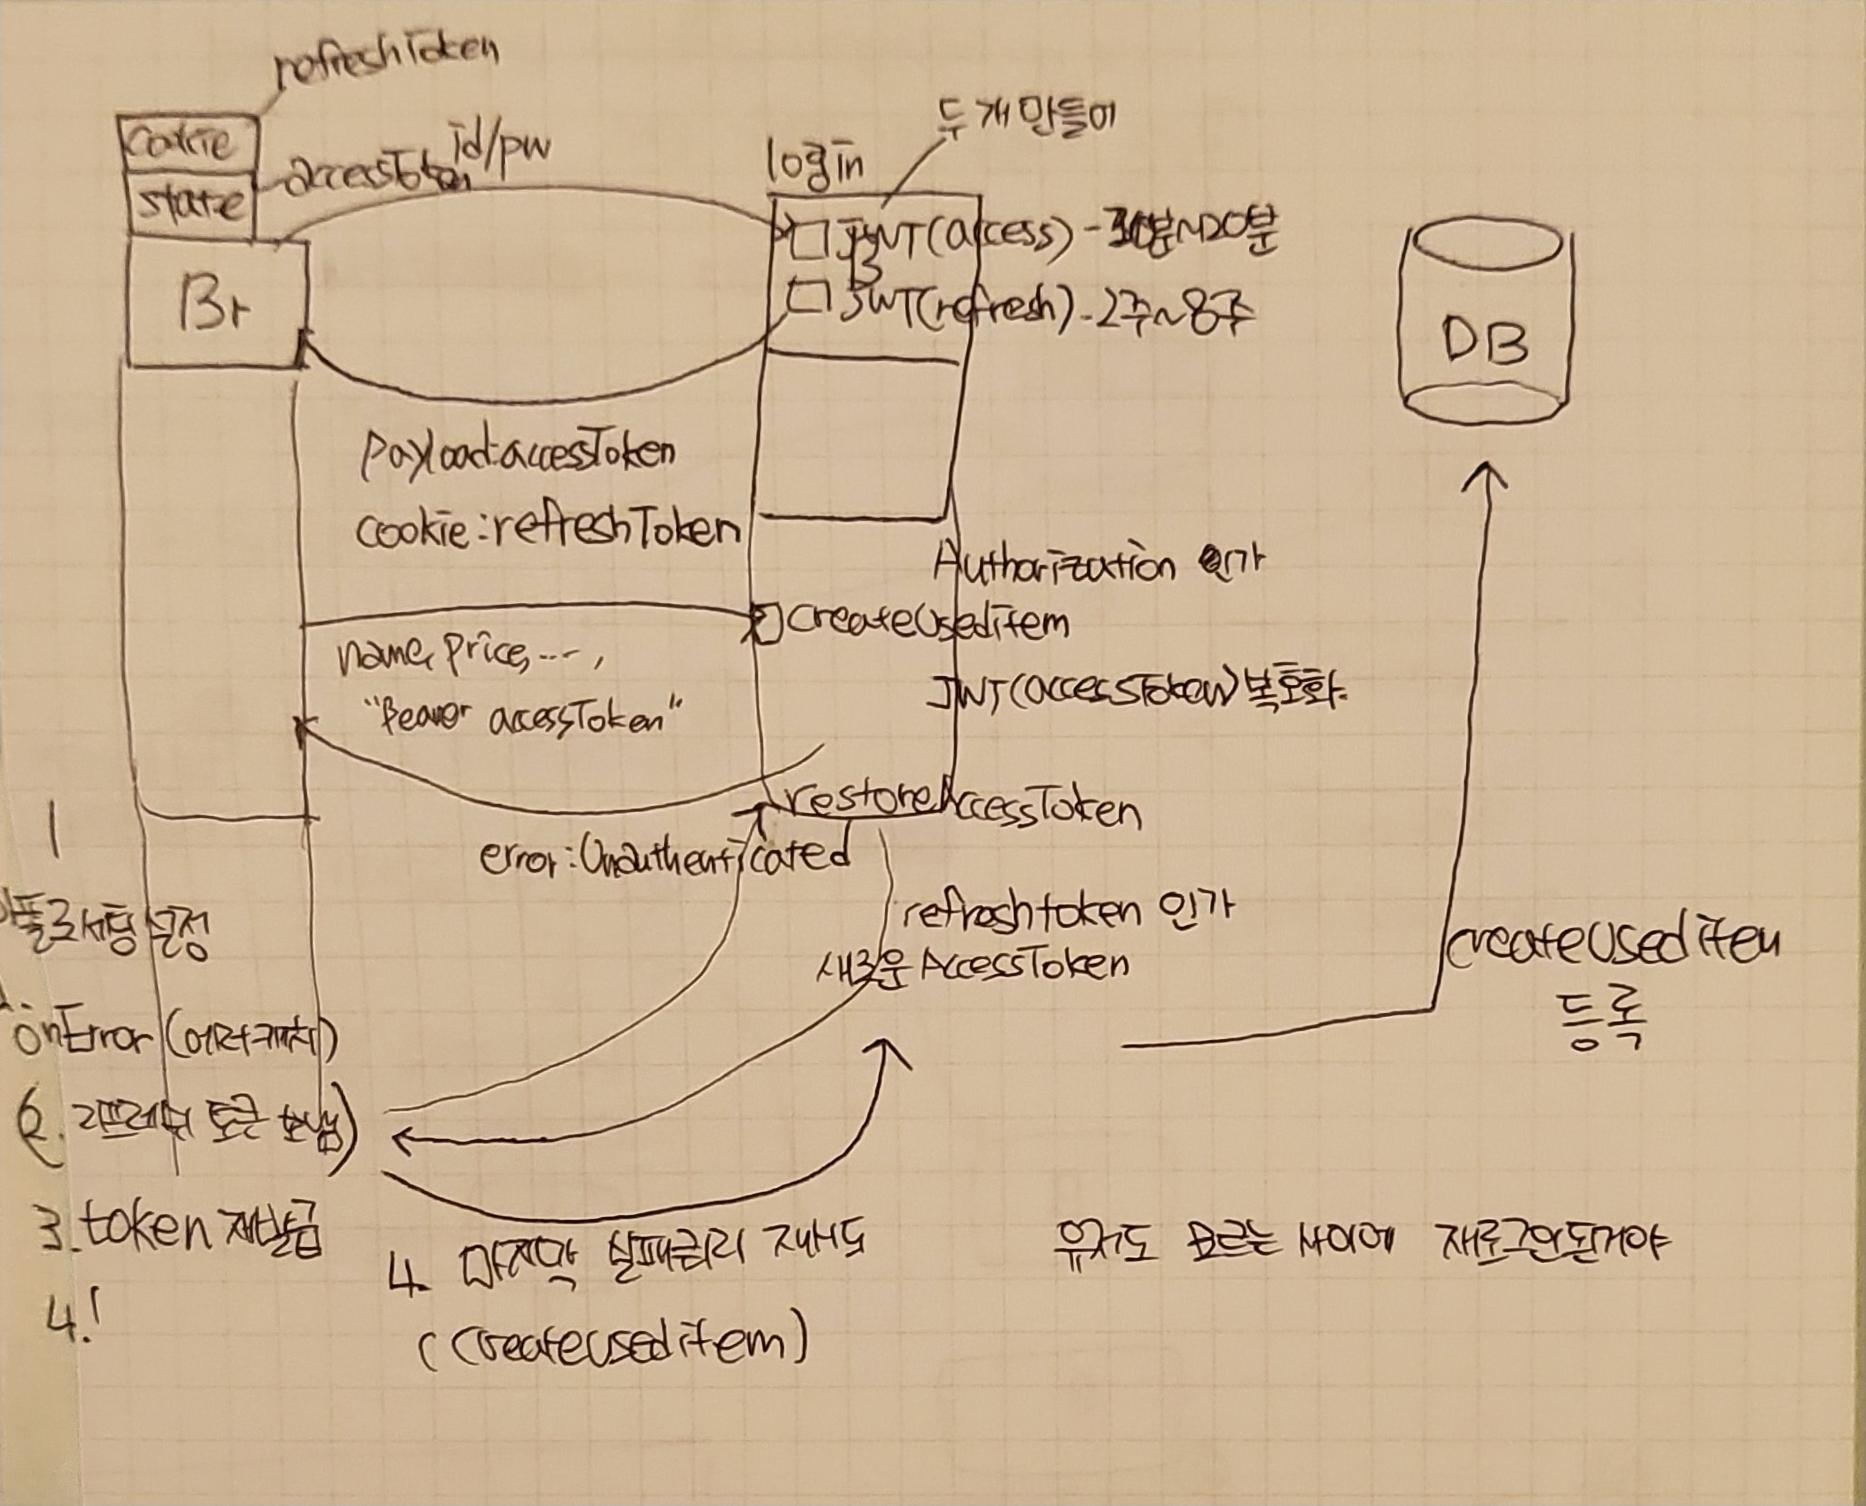 refreshToken
cookie
accessToken
id/pw
state
Br
두개 만들어
login
JWT(access) - 분~20분
JWT(refresh) - 2주~8주
DB
payload:accessToken
cookie:refreshToken
Authorization 인가
createUseditem
name, price, ---,
"Bearer accessToken"
JWT(accessToken)복호화.
restoreAccessToken
error:Unauthenticated
refreshtoken 인가
새로운 AccessToken
createUseditem
등록
1
세팅 설정
onError (에러캐치)
(2. 리프레쉬 토큰 보냄)
3. token 재발급
4.!
4. 마지막 실패쿼리 재시도
(createUseditem)
유저도 모르는 사이에 재로그인된거야